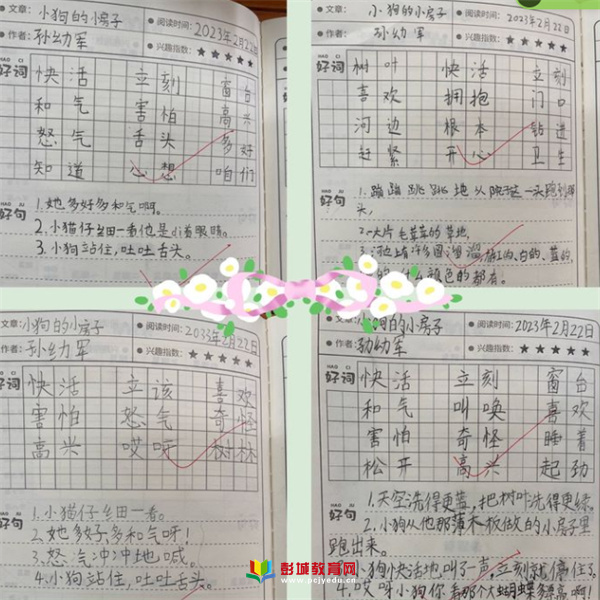 文章: 小狗的小房子
阅读时间: 2023年2月22
作者: 孙幼军
兴趣指数: ★★★★★
HAO CI
好词
快活 立刻 窗台
和气 害怕 高兴
怒气 舌头 多好
知道 心想 咱们
HAO JU
好句
1.她多好多和气啊。
2.小猫仔细一看他是di着眼睛。
3.小狗站住,吐吐舌头。
文章: 小狗的小房子
阅读时间: 2023年2月22日
作者: 孙幼军
兴趣指数: ★★★★★
HAO CI
好词
树叶 快活 立刻
喜欢 拥抱 门口
河边 根本 钻进
赶紧 开心 卫生
好句
1.蹦蹦跳跳地从院子这一头跑到那
头,
2.一大片毛茸茸的草地,
3.河边有许多圆溜溜 粉红的、白的、蓝的,
什么颜色的都有。
文章: 小狗的小房子
阅读时间: 2023年2月22日
作者: 孙幼军
兴趣指数: ★★★★★
HAO CI
好词
快活 立该 喜欢
害怕 怒气 奇怪
高兴 哎呀 树林
HAO JU
好句
1.小猫仔细一看。
2.她多好多和气呀!
3.怒气冲冲地喊。
4.小狗站住,吐吐舌头。
文章: 小狗的小房子
阅读时间: 2023年2月22日
作者: 孙幼军
兴趣指数: ★★★★★
HAO CI
好词
快活 立刻 窗台
和气 叫唤 喜欢
害怕 奇怪 睡着
松开 高兴 起劲
HAO JU
好句
1.天空洗得更蓝,把树叶洗得更绿。
2.小狗从他那薄木板做的小房子里
跑出来。
3.小狗快活地叫了一声,立刻就停住了。
4.哎呀小狗你看那个蝴蝶多高啊!
彭城教育网
www.pcjyedu.com